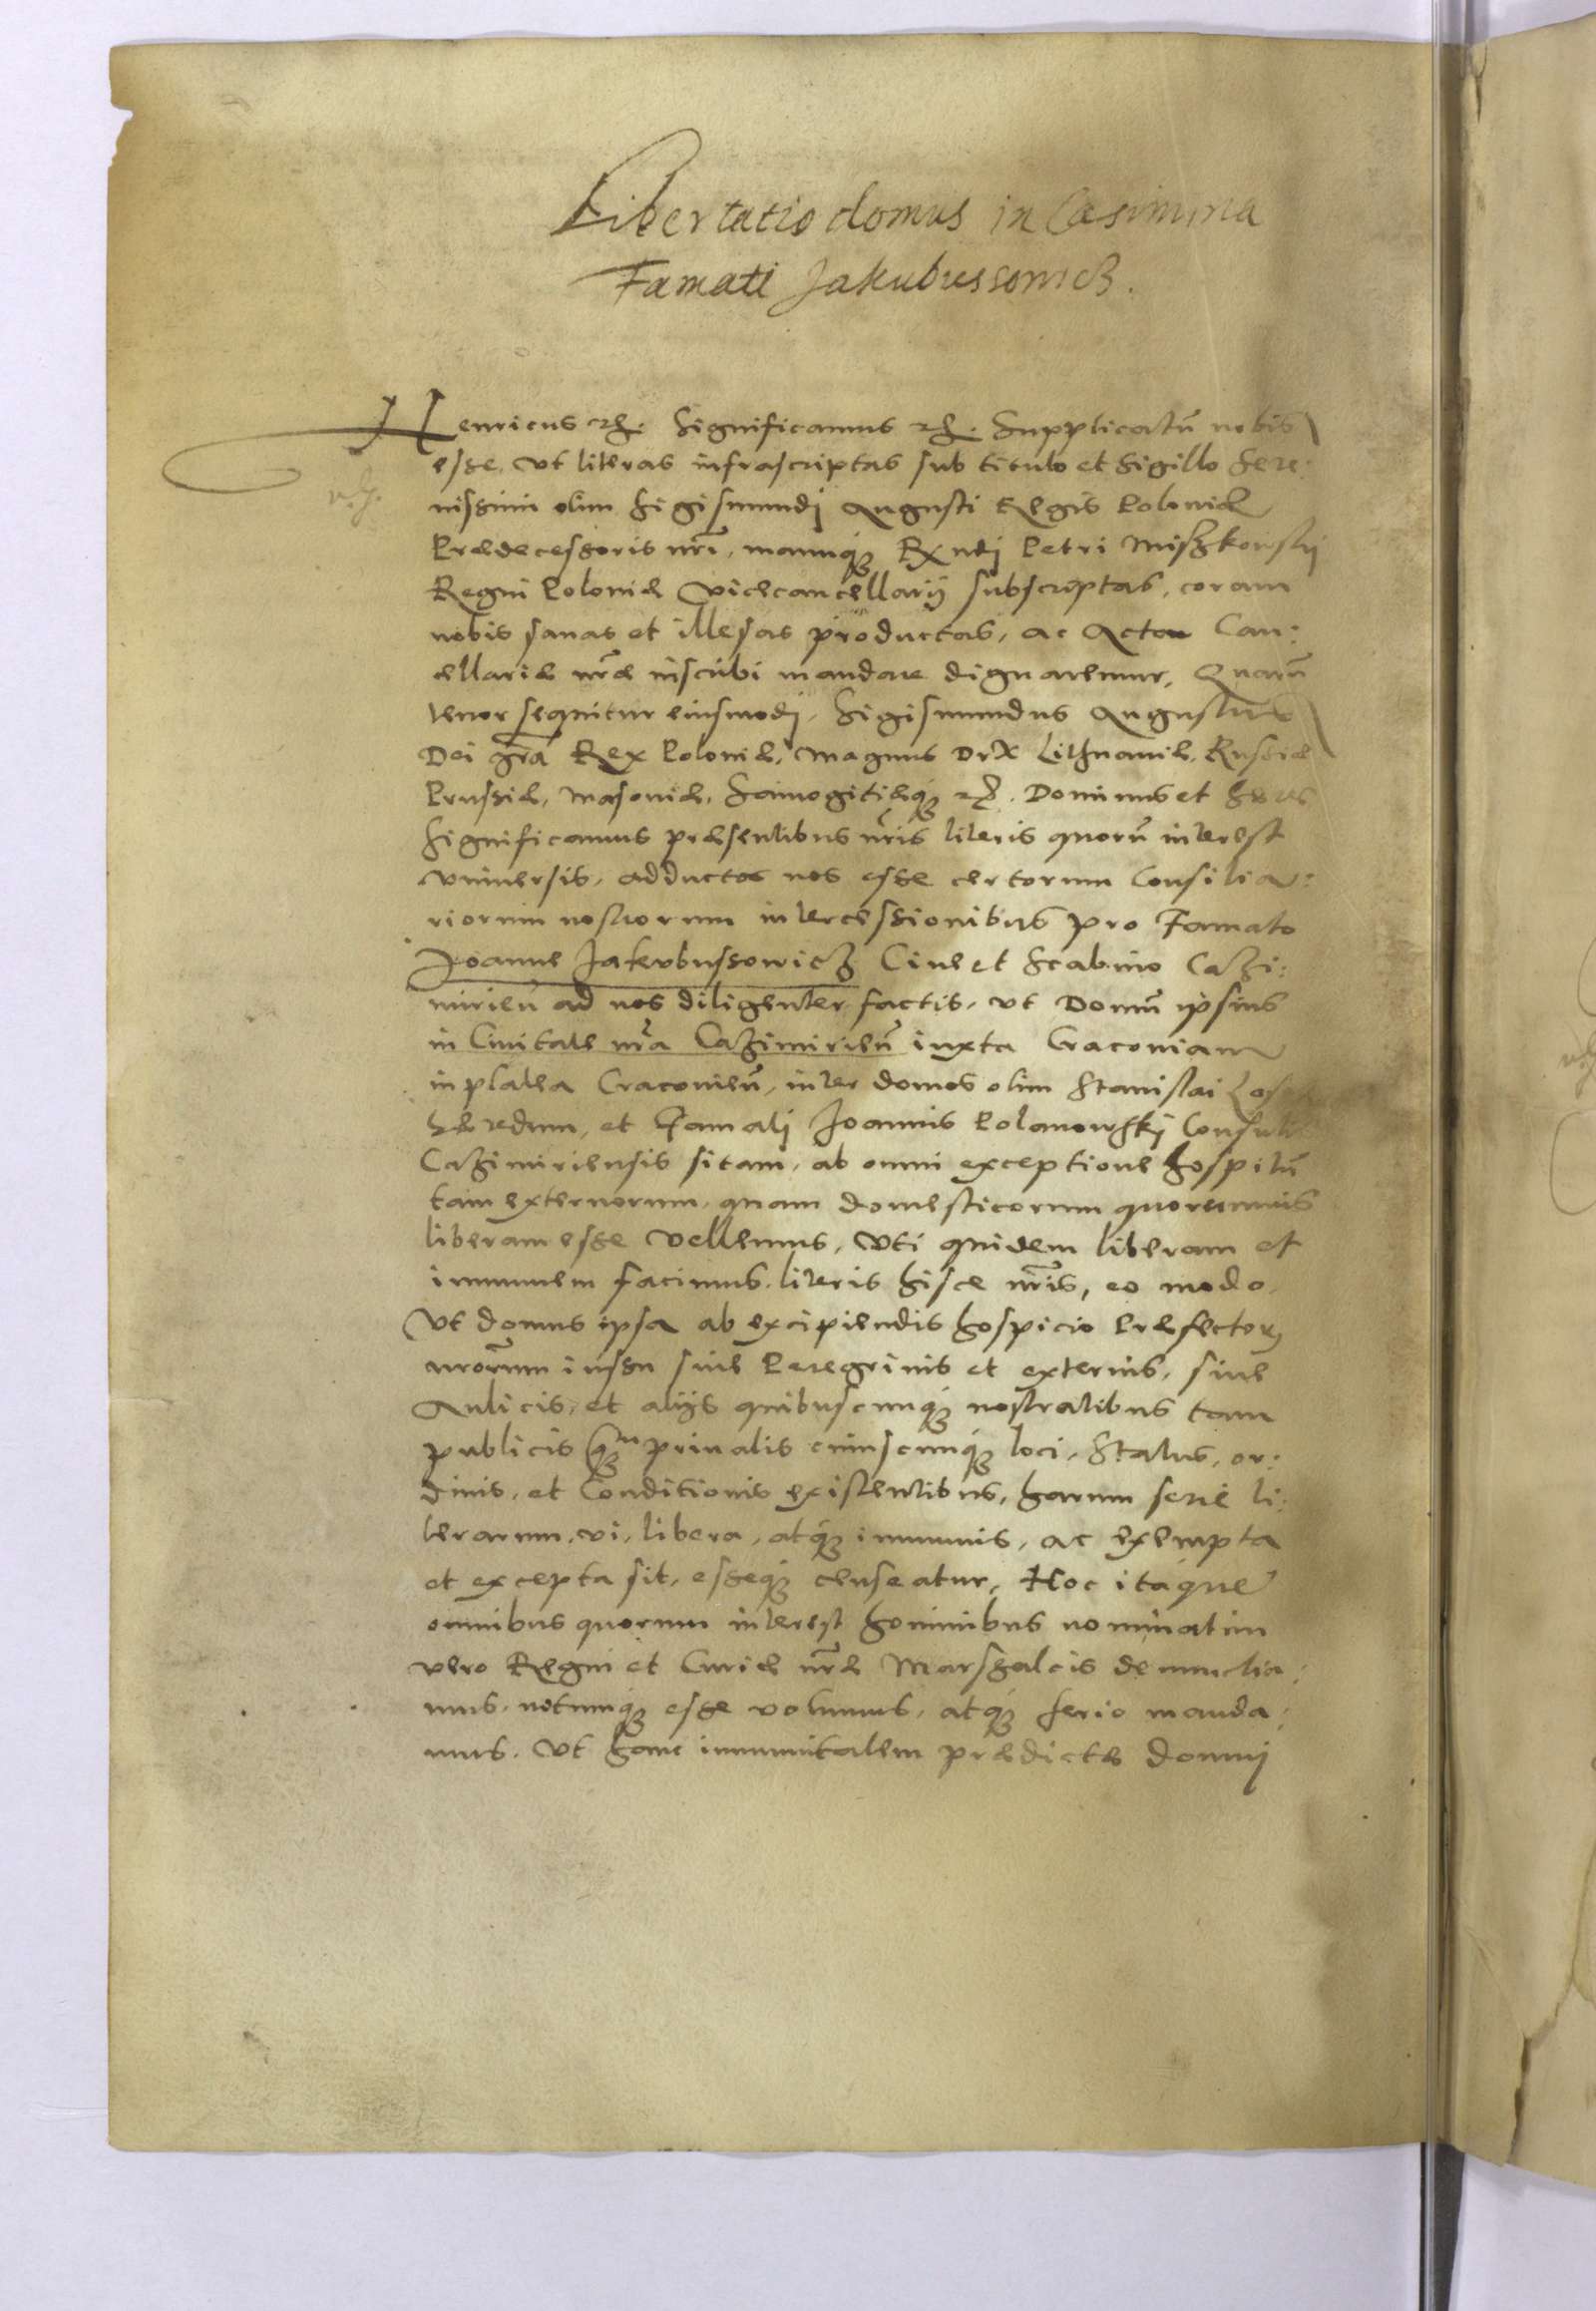 Libertatio domus in Casimiria
Famati Jakubussowicz.
Henricus etc. Significamus etc. Supplicatũ nobis
esse, vt literas infrascriptas sub titulo et Sigillo Sere:
nissimi olim Sigismundj Augusti Regis Poloniæ
Prædecessoris nrĩ, manuq́ꝫ Rxndj Petri Miszkowskij
Regni Poloniæ Vicecancellarij subscriptas, coram
nobis sanas et illesas productas, ac Actou Can:
cellariæ nr̃æ inscribi mandare dignaremur, Quarũ
tenor sequitur eiusmodj. Sigismundus Augustus
Dei gr̃a Rex Poloniæ, Magnus Dux Lithuaniæ, Russiæ
Prussiæ, Masouiæ, Samogitiæq́ꝫ etc. Dominus et Heres
Significamus præsentibus nr̃is literis quorũ interest
vniuersis, adductos nos esse certorum Consilia:
riorum nostrorum intercessionibus pro Famato
Joanne Jakubussowicz Ciue et Scabino Cazi:
mirieñ ad nos diligenter factis, vt Domũ ipsius
in Ciuitate nr̃a Cazimirieñ iuxta Cracouiam
in platea Cracouieñ, inter domos olim Stanislai
hæredum, et Famatj Joannis Polanowskj Consulis
Cazimiriensis sitam, ab omni exceptione hospitũ
tam externorum, quam domesticorum quorumuis
liberam esse vellemus, Vti quidem liberam et
immunem facimus literis hisce nr̃is, eo modo,
Vt domus ipsa ab excipiendis hospicio Præfectorꝫ
nrõrum iussu siue Peregrinis et externis, siue
Aulicis, et alijs quibuscunq́ꝫ nostratibus tam
publicis qm̃ priuatis cuiuscunq́ꝫ loci, Status, or:
dinis, et Conditionis existentibus, harum serie li:
terarum, vi, libera, atq́ꝫ immunis, ac exempta
et excepta sit, esseq́ꝫ censeatur, Hoc itaque
omnibus quorum interest hominibus nominatim
vero Regni et Curiæ nr̃æ Marshalcis denunctia:
mus, notumq́ꝫ esse volumus, atq́ꝫ serio manda:
mus. Vt hanc immunitatem prædictæ domuj